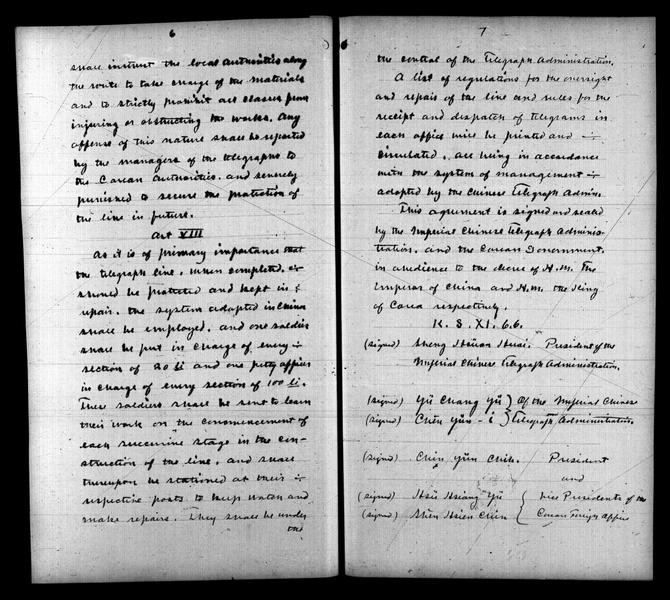 6
shall instruct the local authorities along
the route to take charge of the materials
and to strictly prohibit all classes from
injuring or obstructing the works. Any
offense of this nature shall be reported
by the managers of the telegraphs to
the Corean authorities. and severely
punished to secure the protection of
the line in future.
Art VIII
As it is of primary importance that
the telegraph line, when completed,
should be protected and kept in
repair. the system adopted in China
shall be employed, and one soldier
shall be put in charge of every
section of 20 li and one petty officer
in charge of every section of 100 li.
These soldiers shall be sent to learn
their work on the commencement of
each successive stage in the con-
struction of the line, and shall
thereupon be stationed at their
respective posts to keep watch and
make repairs. They shall be under
the
7
the control of the Telegraph Administration.
A list of regulations for the oversight
and repair of the line and rules for the
receipt and dispatch of telegrams in
each office will be printed and
circulated, all being in accordance
with the system of management
adopted by the Chinese Telegraph Admin.
This agreement is signed and sealed
by the Imperial Chinese Telegraph Adminis-
tration, and the Corean Government.
in audience to the decree of H.M. The
Emperor of China and H.M. the King
of Corea respectively.
K. S. XI. 6. 6.
(signed) Sheng Hsüan Huai. President of the
Imperial Chinese Telegraph Administration.
(signed) Yü Chang Yü } Of the Imperial Chinese
(signed) Chên Yün-i } Telegraph Administration.
(signed) Chin Yün Chih. President
and
(signed) Hsü Hsiang Yü { Vice Presidents of the
(signed) Shên Hsien Chin { Corean Foreign Office